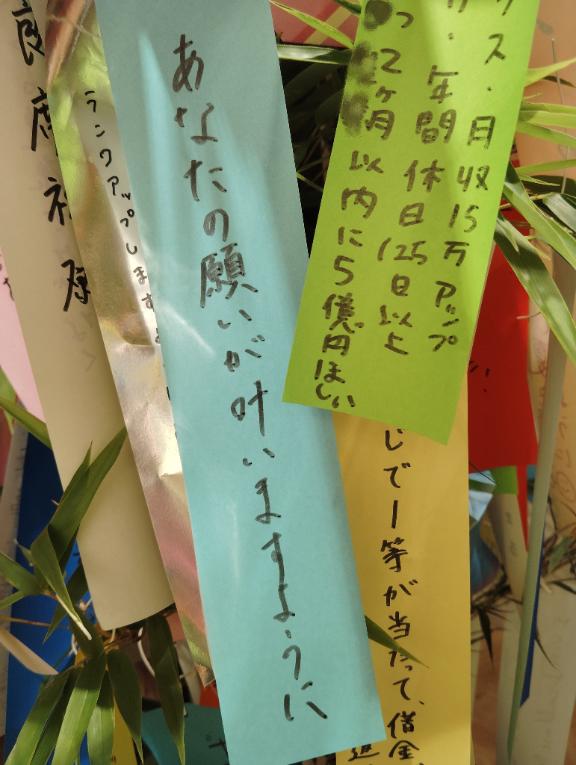 あなたの願いが叶いますように
ス・月収15万アップ
・年間休日125日以上
っ2ヶ月以内に5億円ほしい
じで一等が当たって、借金
ランクアップしますよ